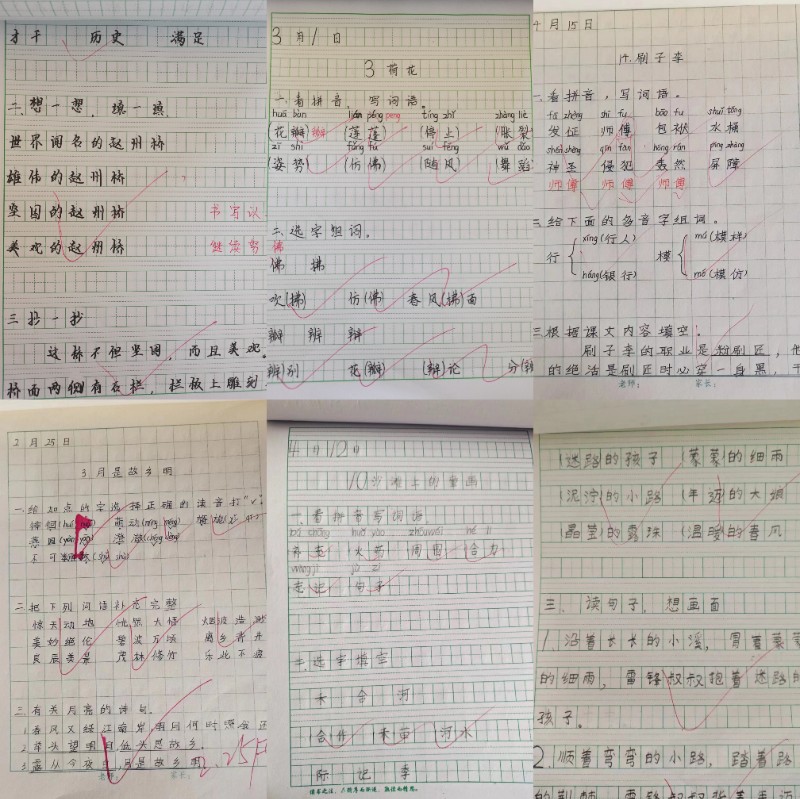 才干 历史 满足
二.想一想，填一填
世界闻名的赵州桥
雄伟的赵州桥
坚固的赵州桥 书写认
美观的赵州桥 继续努
三 抄一抄
这桥不但坚固，而且美观。
桥面两侧有石栏，栏板上雕刻
3月1日
3 荷花
一.看拼音，写词语。
huā bàn tíng zhǐ zhàng liè
(花瓣) 瓣 (莲蓬) (停止) (胀裂
zī shì fǎng fú suí fēng wǔ dǎo
(姿势) (仿佛) (随风) (舞蹈
二.选字组词。
佛 拂
吹(拂) 仿(佛) 春风(拂)面
瓣 辨 辩
(辨)别 花(瓣) (辩)论 分(辨
4月15日
14.刷子李
一.看拼音，写词语。
fā zhèng shī fu bāo fu shuǐ tǒng
发证 师傅 包袱 水桶
shén shèng qīn fàn hōng rán píng zhàng
神圣 侵犯 轰然 屏障
师傅 师傅 师傅
二.给下面的多音字组词。
xíng(行人) mú(模样)
行 模
háng(银行) mó(模仿)
三.根据课文内容填空。
刷子李的职业是粉刷匠，他
的绝活是刷匠时必穿一身黑，干
老师： 家长：
2月25日
3月是故乡明
一.给加点的字选择正确的读音打"√"
萌动
澄澈
二.把下列词语补充完整
惊天动地 恍然大悟 烟波浩渺
美妙绝伦 碧波万顷 离乡背井
良辰美景 茂林修竹 乐此不疲
三.有关月亮的诗句。
1春风又绿江南岸明月何时照我还
2举头望明月低头思故乡。
3露从今夜白，月是故乡明
老师： 家长： 2.25
4月12日
10沙滩上的童画
一.看拼音写词语
bǔ chōng huǒ yào zhōu wéi hé lì
补充 火药 周围 合力
wàng jì jù zi
忘记 句子
二.选字填空
禾 合 河
合并 禾苗 河水
际 记 季
(迷路)的孩子 (蒙蒙)的细雨
(泥泞)的小路 (年迈)的大娘
(晶莹)的露珠 (温暖)的春风
三. 读句子，想画面
1.沿着长长的小溪，冒着蒙蒙
的细雨，雷锋叔叔抱着迷路的
孩子。
2.顺着弯弯的小路，踏着路
的荆棘，雷锋叔叔背着年迈